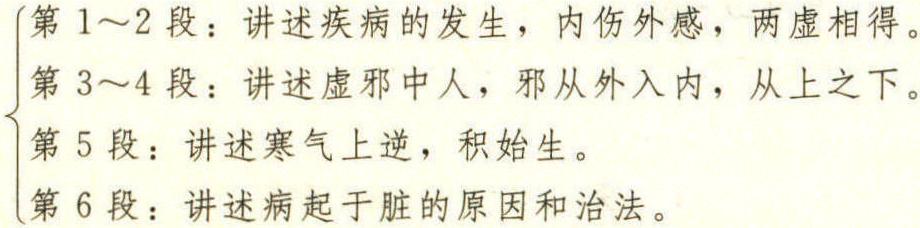 第 1～2 段：讲述疾病的发生，内伤外感，两虚相得。
第 3～4 段：讲述虚邪中人，邪从外入内，从上之下。
第 5 段：讲述寒气上逆，积始生。
第 6 段：讲述病起于脏的原因和治法。